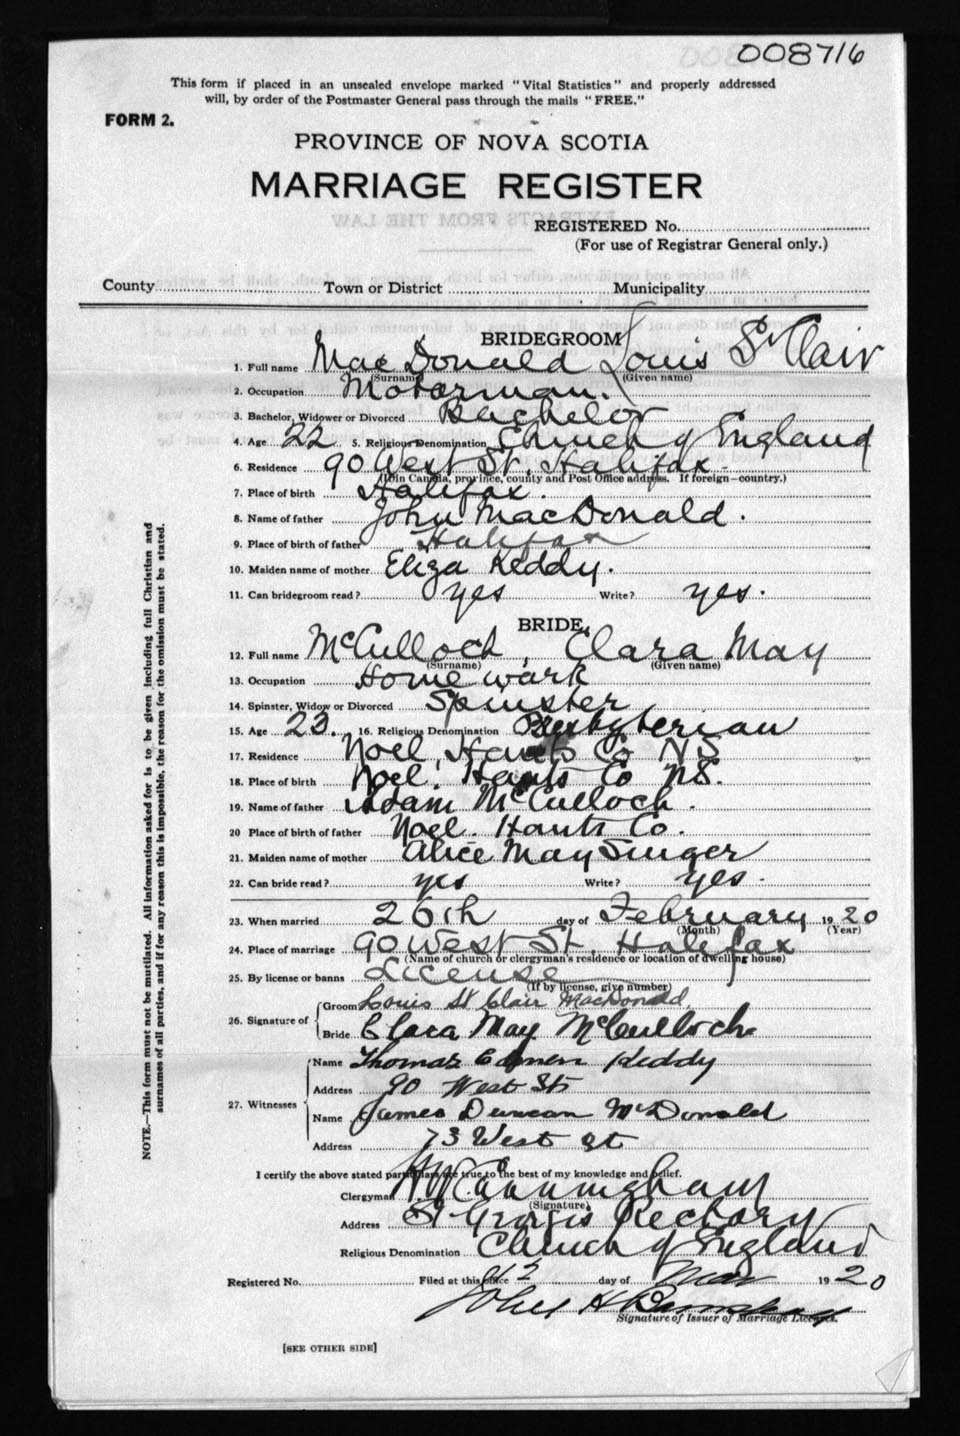 008716
This form if placed in an unsealed envelope marked "Vital Statistics" and properly addressed
will, by order of the Postmaster General pass through the mails "FREE."
FORM 2.
PROVINCE OF NOVA SCOTIA
MARRIAGE REGISTER
REGISTERED No.
(For use of Registrar General only.)
County Town or District Municipality
BRIDEGROOM
1. Full name MacDonald Louis St Clair
(Surname) (Given name)
2. Occupation Motorman.
3. Bachelor, Widower or Divorced Bachelor
4. Age 22 5. Religious Denomination Church of England
6. Residence 90 West St. Halifax.
(If in Canada, province, county and Post Office address. If foreign—country.)
7. Place of birth Halifax.
8. Name of father John MacDonald.
9. Place of birth of father Halifax
10. Maiden name of mother Eliza Keddy.
11. Can bridegroom read? yes Write? yes.
BRIDE
12. Full name McCulloch, Clara May
(Surname) (Given name)
13. Occupation Home wark
14. Spinster, Widow or Divorced Spinster
15. Age 23. 16. Religious Denomination Presbyterian
17. Residence Noel, Hants Co NS
18. Place of birth Noel. Hants Co NS.
19. Name of father Adam McCulloch.
20 Place of birth of father Noel. Hants Co.
21. Maiden name of mother Alice May Singer
22. Can bride read? yes Write? yes.
23. When married 26th day of February 1920
(Month) (Year)
24. Place of marriage 90 West St. Halifax
(Name of church or clergyman's residence or location of dwelling house)
25. By license or banns License
(If by license, give number)
26. Signature of
Groom Louis St Clair MacDonald.
Bride Clara May McCulloch
27. Witnesses
Name Thomas Keddy
Address 90 West St
Name James Duncan McDonald
Address 73 West St
I certify the above stated particulars are true to the best of my knowledge and belief.
Clergyman H W Cunningham
(Signature)
Address St Georges Rectory
Religious Denomination Church of England
Registered No. Filed at this office 12 day of Mar 1920
John H
Signature of Issuer of Marriage Licenses.
[SEE OTHER SIDE]
NOTE.—This form must not be mutilated. All information asked for is to be given including full Christian and
surnames of all parties, and if for any reason this is impossible, the reason for the omission must be stated.